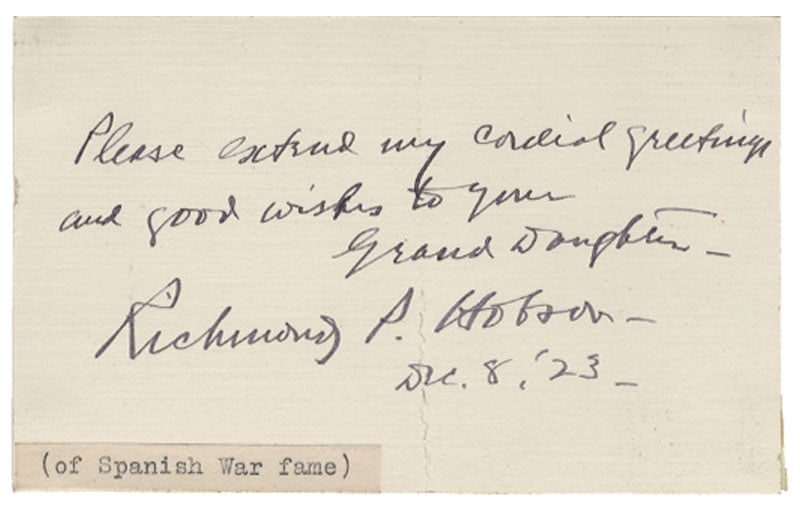 Please extend my cordial greetings
and good wishes to your
Grand Daughter –
Richmond P. Hobson –
Dec. 8, '23 –
(of Spanish War fame)